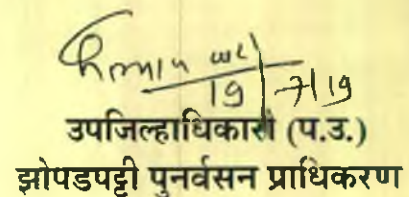 19/7/19
उपजिल्हाधिकारी (प.उ.)
झोपडपट्टी पुनर्वसन प्राधिकरण